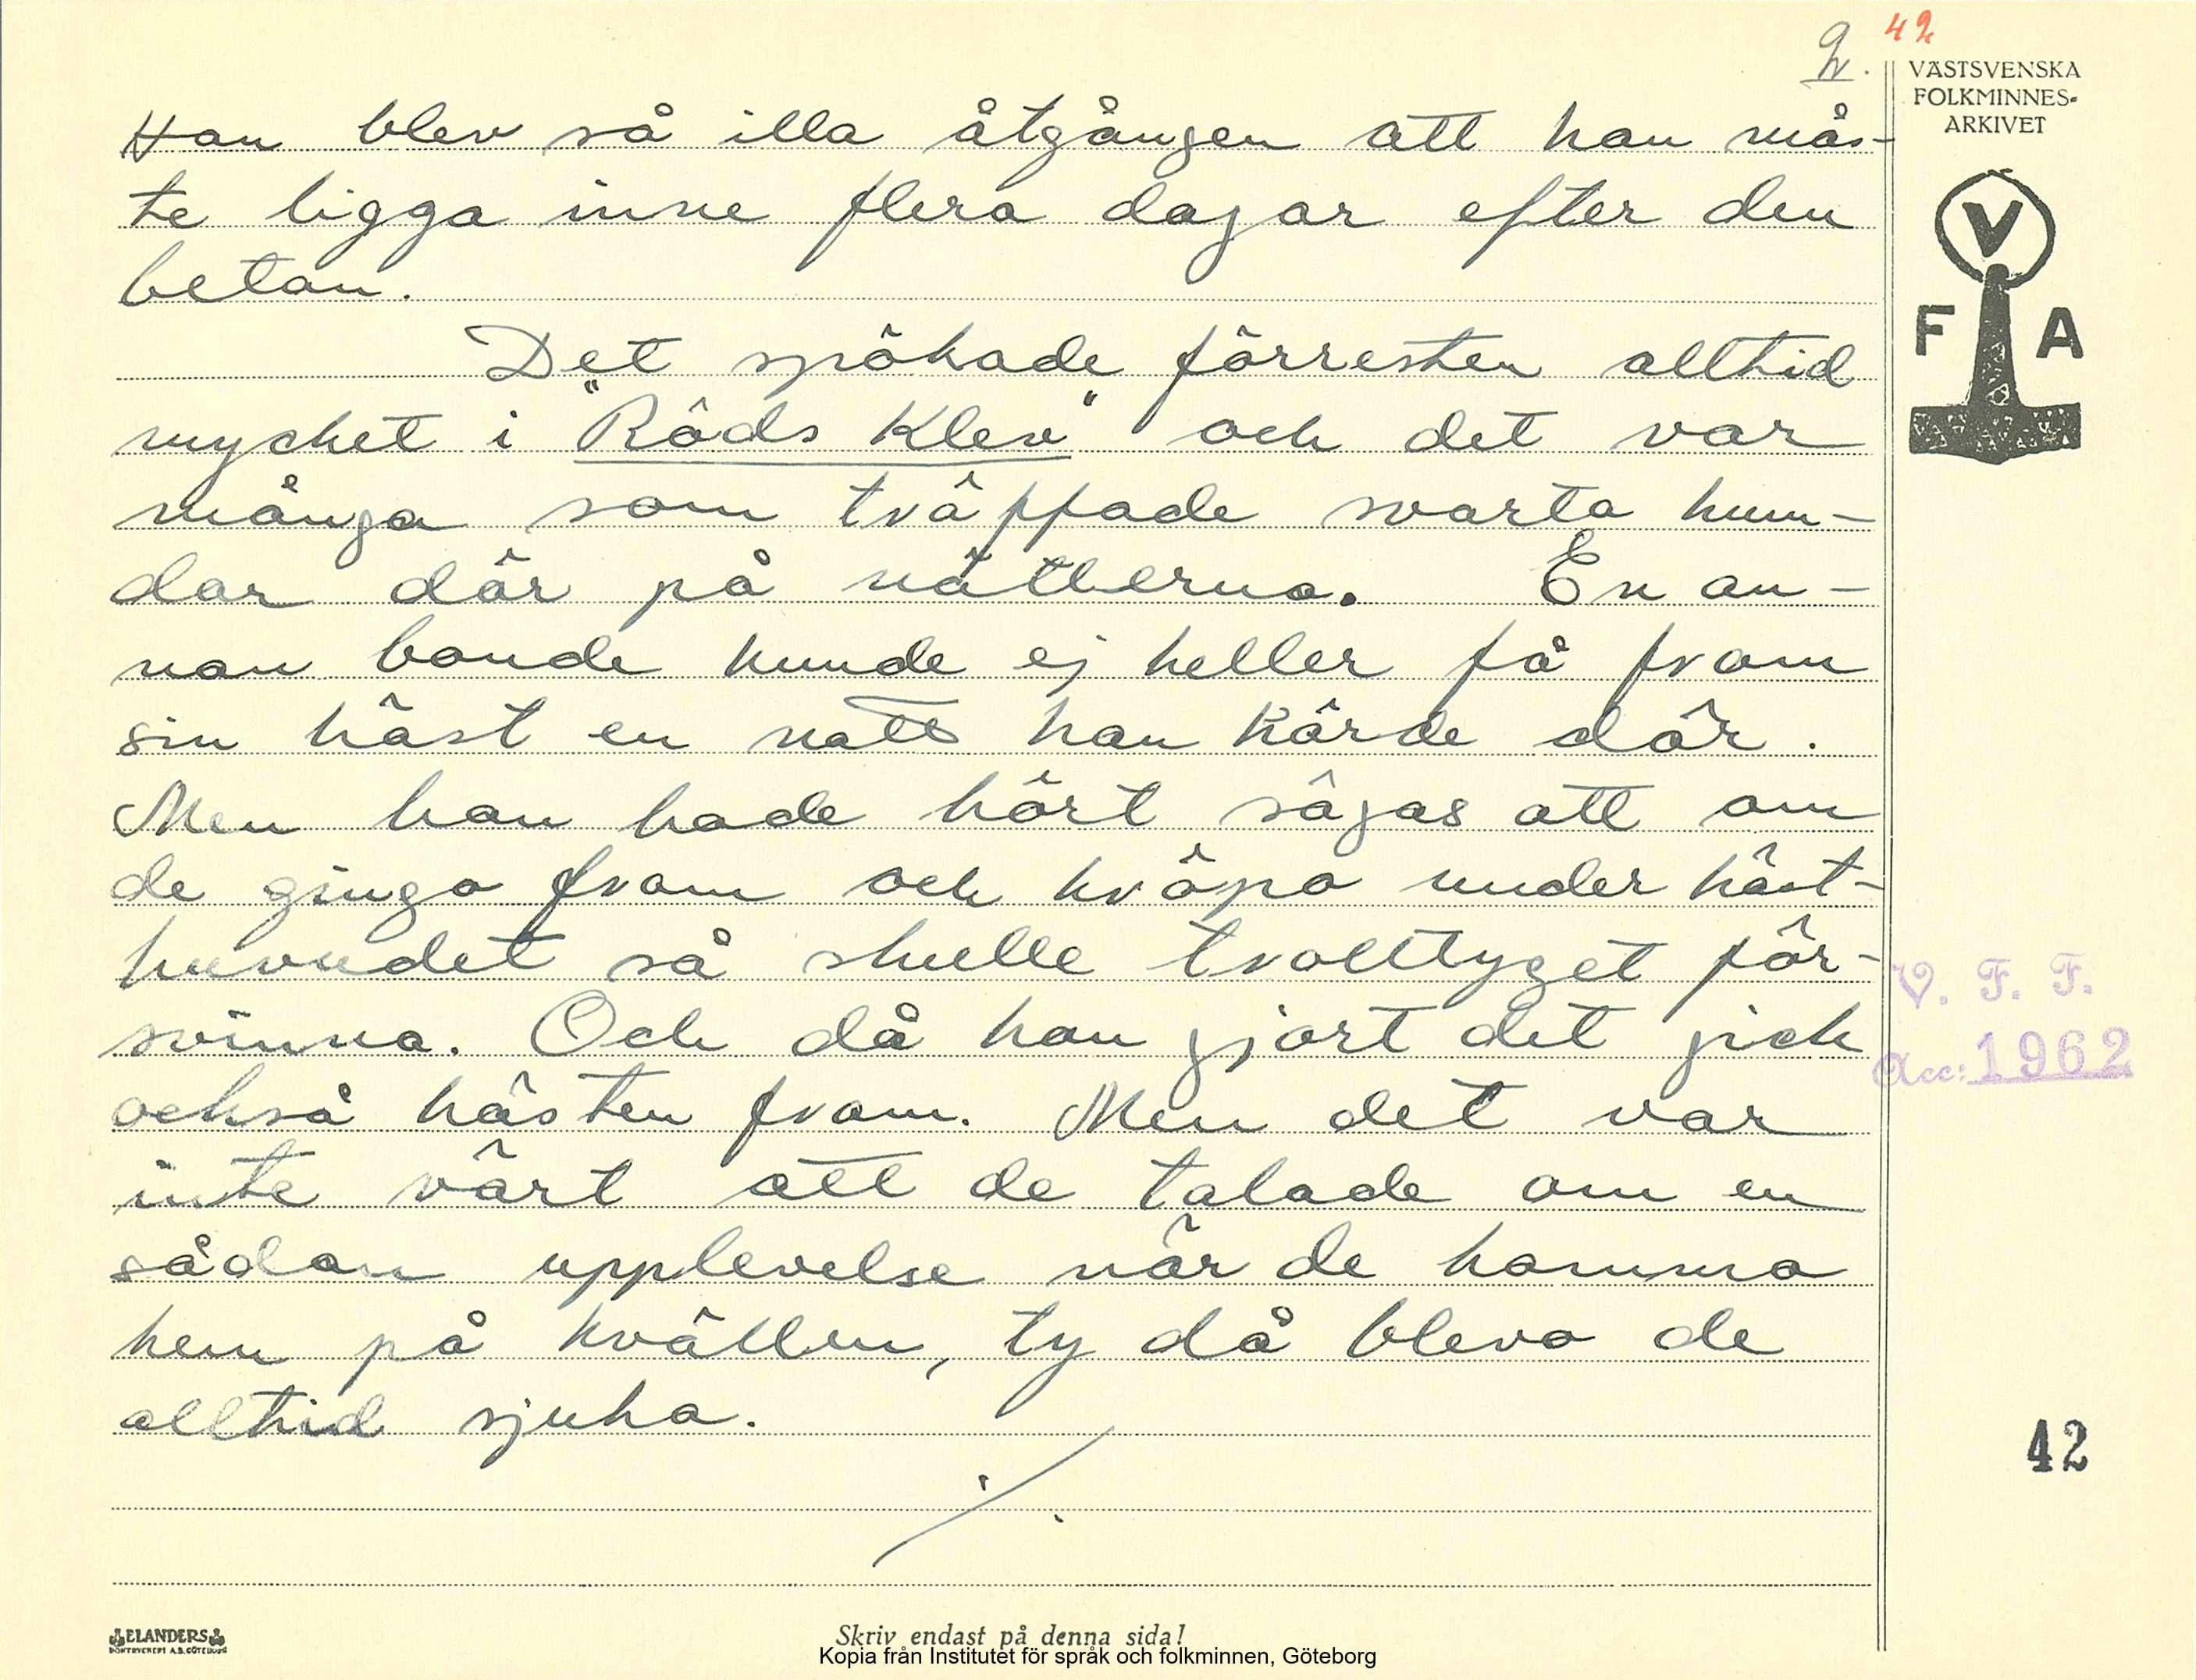 2.
42
VÄSTSVENSKA
FOLKMINNES-
ARKIVET
V
F A
Han blev så illa åtgången att han mås-
te ligga inne flera dagar efter den
betan.
Det spökade förresten alltid
mycket i "Röds Klev" och det var
många som träppade svarta hun-
dar där på nätterna. En an-
nan bonde kunde ej heller få fram
sin häst en natt han körde där.
Men han hade hört sägas att om
de gingo fram och kröpo under häst-
huvudet så skulle trolltyget för-
svinna. Och då han gjort det gick
också hästen fram. Men det var
inte värt att de talade om en
sådan upplevelse när de kommo
hem på kvällen, ty då blevo de
alltid sjuka.
./.
V. F. F.
Acc: 1962
42
ELANDERS
BOKTRYCKERI A.B. GÖTEBORG
Skriv endast på denna sida!
Kopia från Institutet för språk och folkminnen, Göteborg